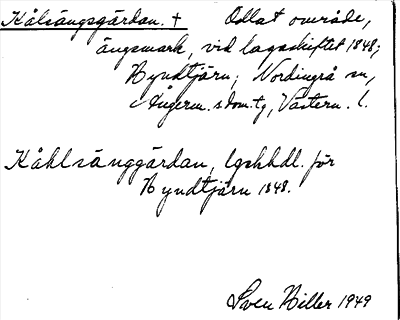 Kålsängsgärdan. + Odlat område,
ängsmark, vid lagaskiftet 1848;
Hyndtjärn; Nordingrå sn,
Ångerm. s. dom. tg, Västern. l.
Kåhlsänggärdan, lgskhdl. för
Hyndtjärn 1848.
Sven Hiller 1949